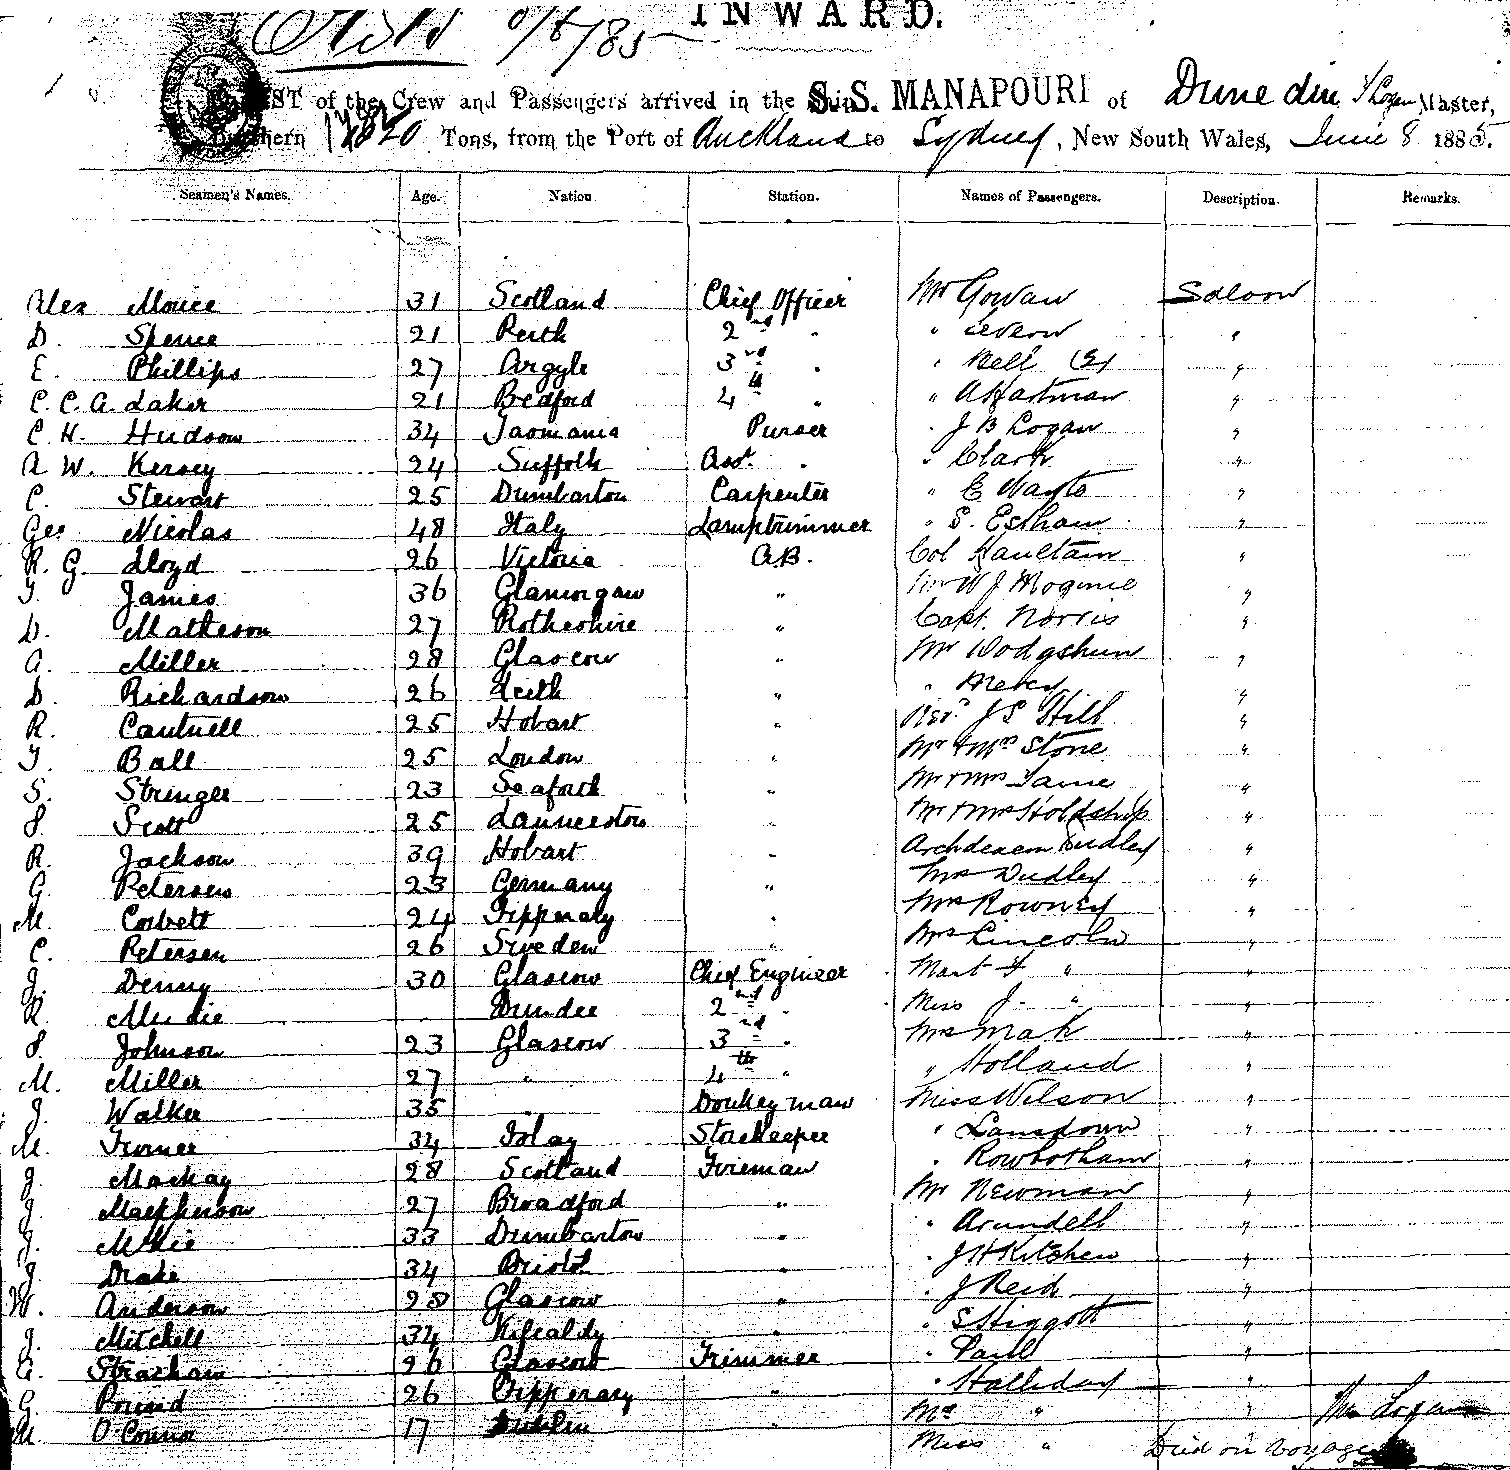 INWARD.
8/6/85
LIST of the Crew and Passengers arrived in the S.S. MANAPOURI of Dunedin, Logan Master,
Burthern 1820 Tons, from the Port of Auckland to Sydney, New South Wales, June 8 1885.
Seamen's Names. Age. Nation Station. Names of Passengers. Description. Remarks.
Alex 31 Scotland Chief Officer Mr Gowan Saloon
D. Spence 21 Perth 2nd " " "
E. Phillips 27 Argyle 3rd " " Nell "
C. C. A. Laker 21 Bedford 4th " " A Hartman "
C H. Hudson 34 Tasmania Purser " J B Logan "
A W. Kersey 24 Suffolk Asst. " " Clark "
C. Stewart 25 Dumbarton Carpenter " E Wayte "
Geo Nicolas 48 Italy Lamptrimmer " S. Esham "
R. G. Lloyd 26 Victoria A.B. Col Haultain "
T. James 36 Glamorgan " W J "
D. Matheson 27 " Capt. Norris "
A. Miller 28 Glascow " Mr Wodgshun "
D. Richardson 26 Leith " " "
R. Cantwell 25 Hobart " Revd J S Hill "
T. Ball 25 London " Mr & Mrs Stone "
S. Stringer 23 Seaforth " Mr & Mrs "
S. Scott 25 Launceston " Mr & Mrs Holdship "
R. Jackson 39 Hobart " Archdeacon Dudley "
G. Petersen 23 Germany " Mrs Dudley "
M. Corbett 24 Tipperaly " Mrs Rowney "
C. Petersen 26 Sweden " Mrs Lincoln "
J. Denny 30 Glascow Chief Engineer Mast F " "
R. Mudie Dundee 2nd " Miss J. " "
S. Johnson 23 Glascow 3rd " Mrs Mah "
M. Miller 27 " 4th " " Holland "
J. Walker 35 Donkeyman Miss Wilson "
M. Turner 34 Islay Storekeeper " Lansdown "
J. Mackay 28 Scotland Fireman " Rowbotham "
J. Macpherson 27 Broadford " Mr Newman "
J. McKie 33 Dumbarton " " Arundell "
J. Drake 34 Bristol " " J H Kitchen "
W. Anderson 28 Glascow " " J Reid "
J. Mitchell 34 Kircaldy " " S Higgott "
G. Strachan 26 Glascow Trimmer " "
G. Pound 26 Tipperary " " Halliday "
M. O'Connor 17 Dublin " Mrs " " Logan
Miss " Died on voyage